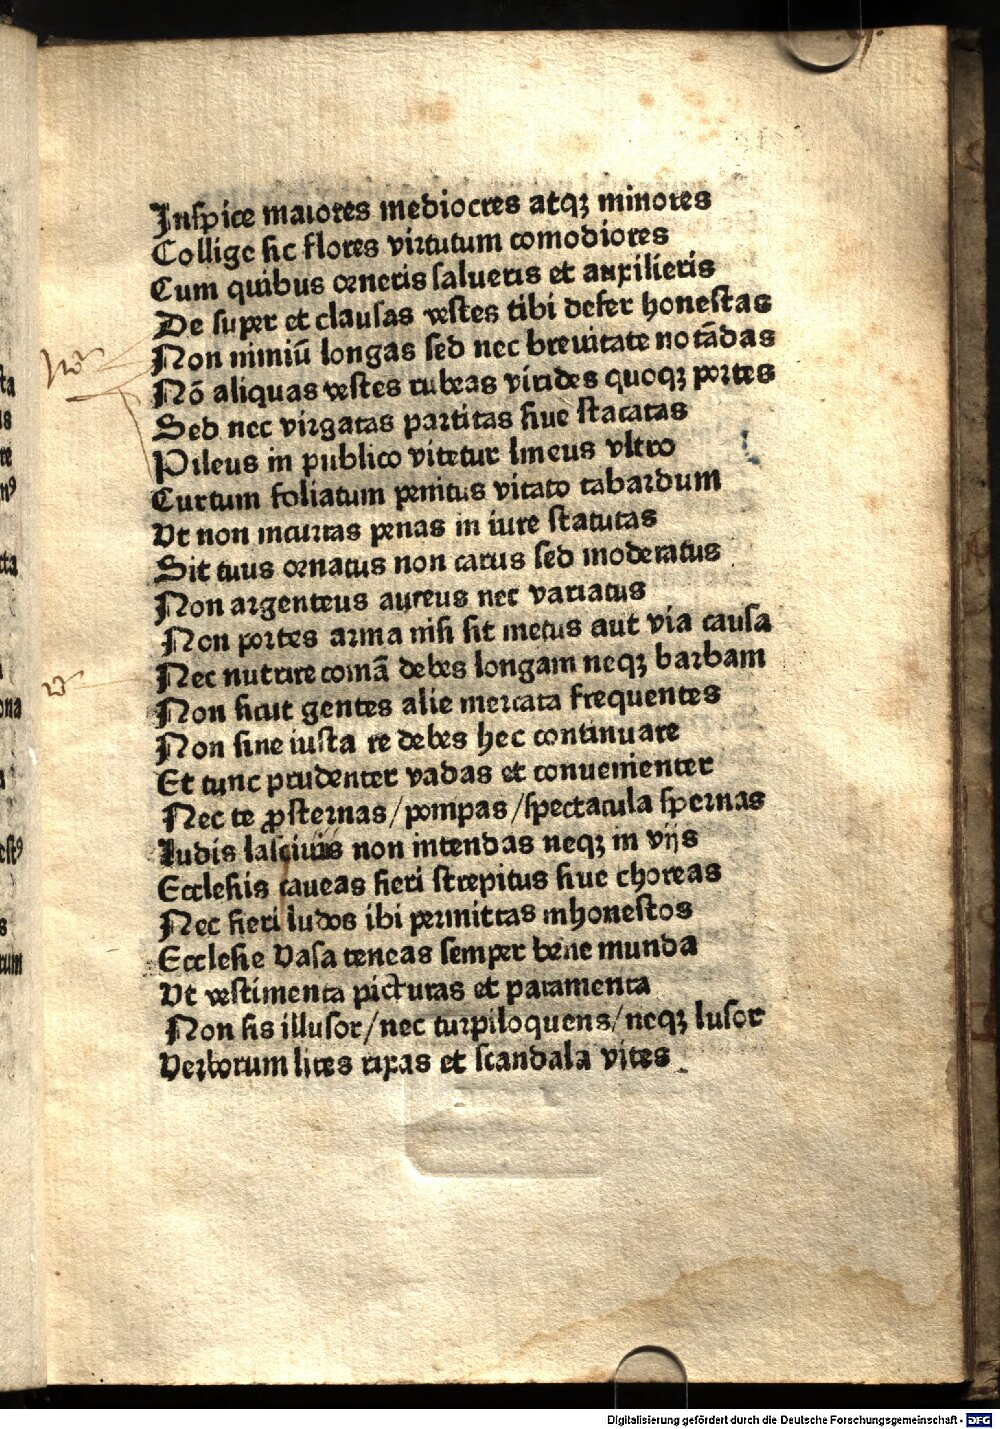 Inſpice maiores mediocres atqꝫ minores
Collige ſic flores virtutum comodiores
Cum quibus orneris ſalueris et auxilieris
De ſuper et clauſas veſtes tibi defer honeſtas
Non nimiū longas ſed nec breuitate notādas
Nō aliquas veſtes rubeas virides quoqꝫ portes
Sed nec virgatas partitas ſiue ſtacatas
Pileus in publico vitetur lineus vltro
Curtum foliatum penitus vitato tabardum
Vt non incurras penas in iure ſtatutas
Sit tuus ornatus non carus ſed moderatus
Non argenteus aureus nec variatus
Non portes arma niſi ſit metus aut via cauſa
Nec nutrire comā debes longam neqꝫ barbam
Non ſicut gentes alie mercata frequentes
Non ſine iuſta re debes hec continuare
Et tunc prudenter vadas et conuenienter
Nec te ꝓſternas/pompas/ſpectacula ſpernas
Ludis laſciuis non intendas neqꝫ in vijs
Eccleſiis caueas fieri ſtrepitus ſiue choreas
Nec fieri ludos ibi permittas inhoneſtos
Eccleſie Vaſa teneas ſemper bene munda
Vt veſtimenta picturas et paramenta
Non ſis illuſor/nec turpiloquens/neqꝫ luſor
Verborum lites rixas et ſcandala vites
Digitalisierung gefördert durch die Deutsche Forschungsgemeinschaft - DFG